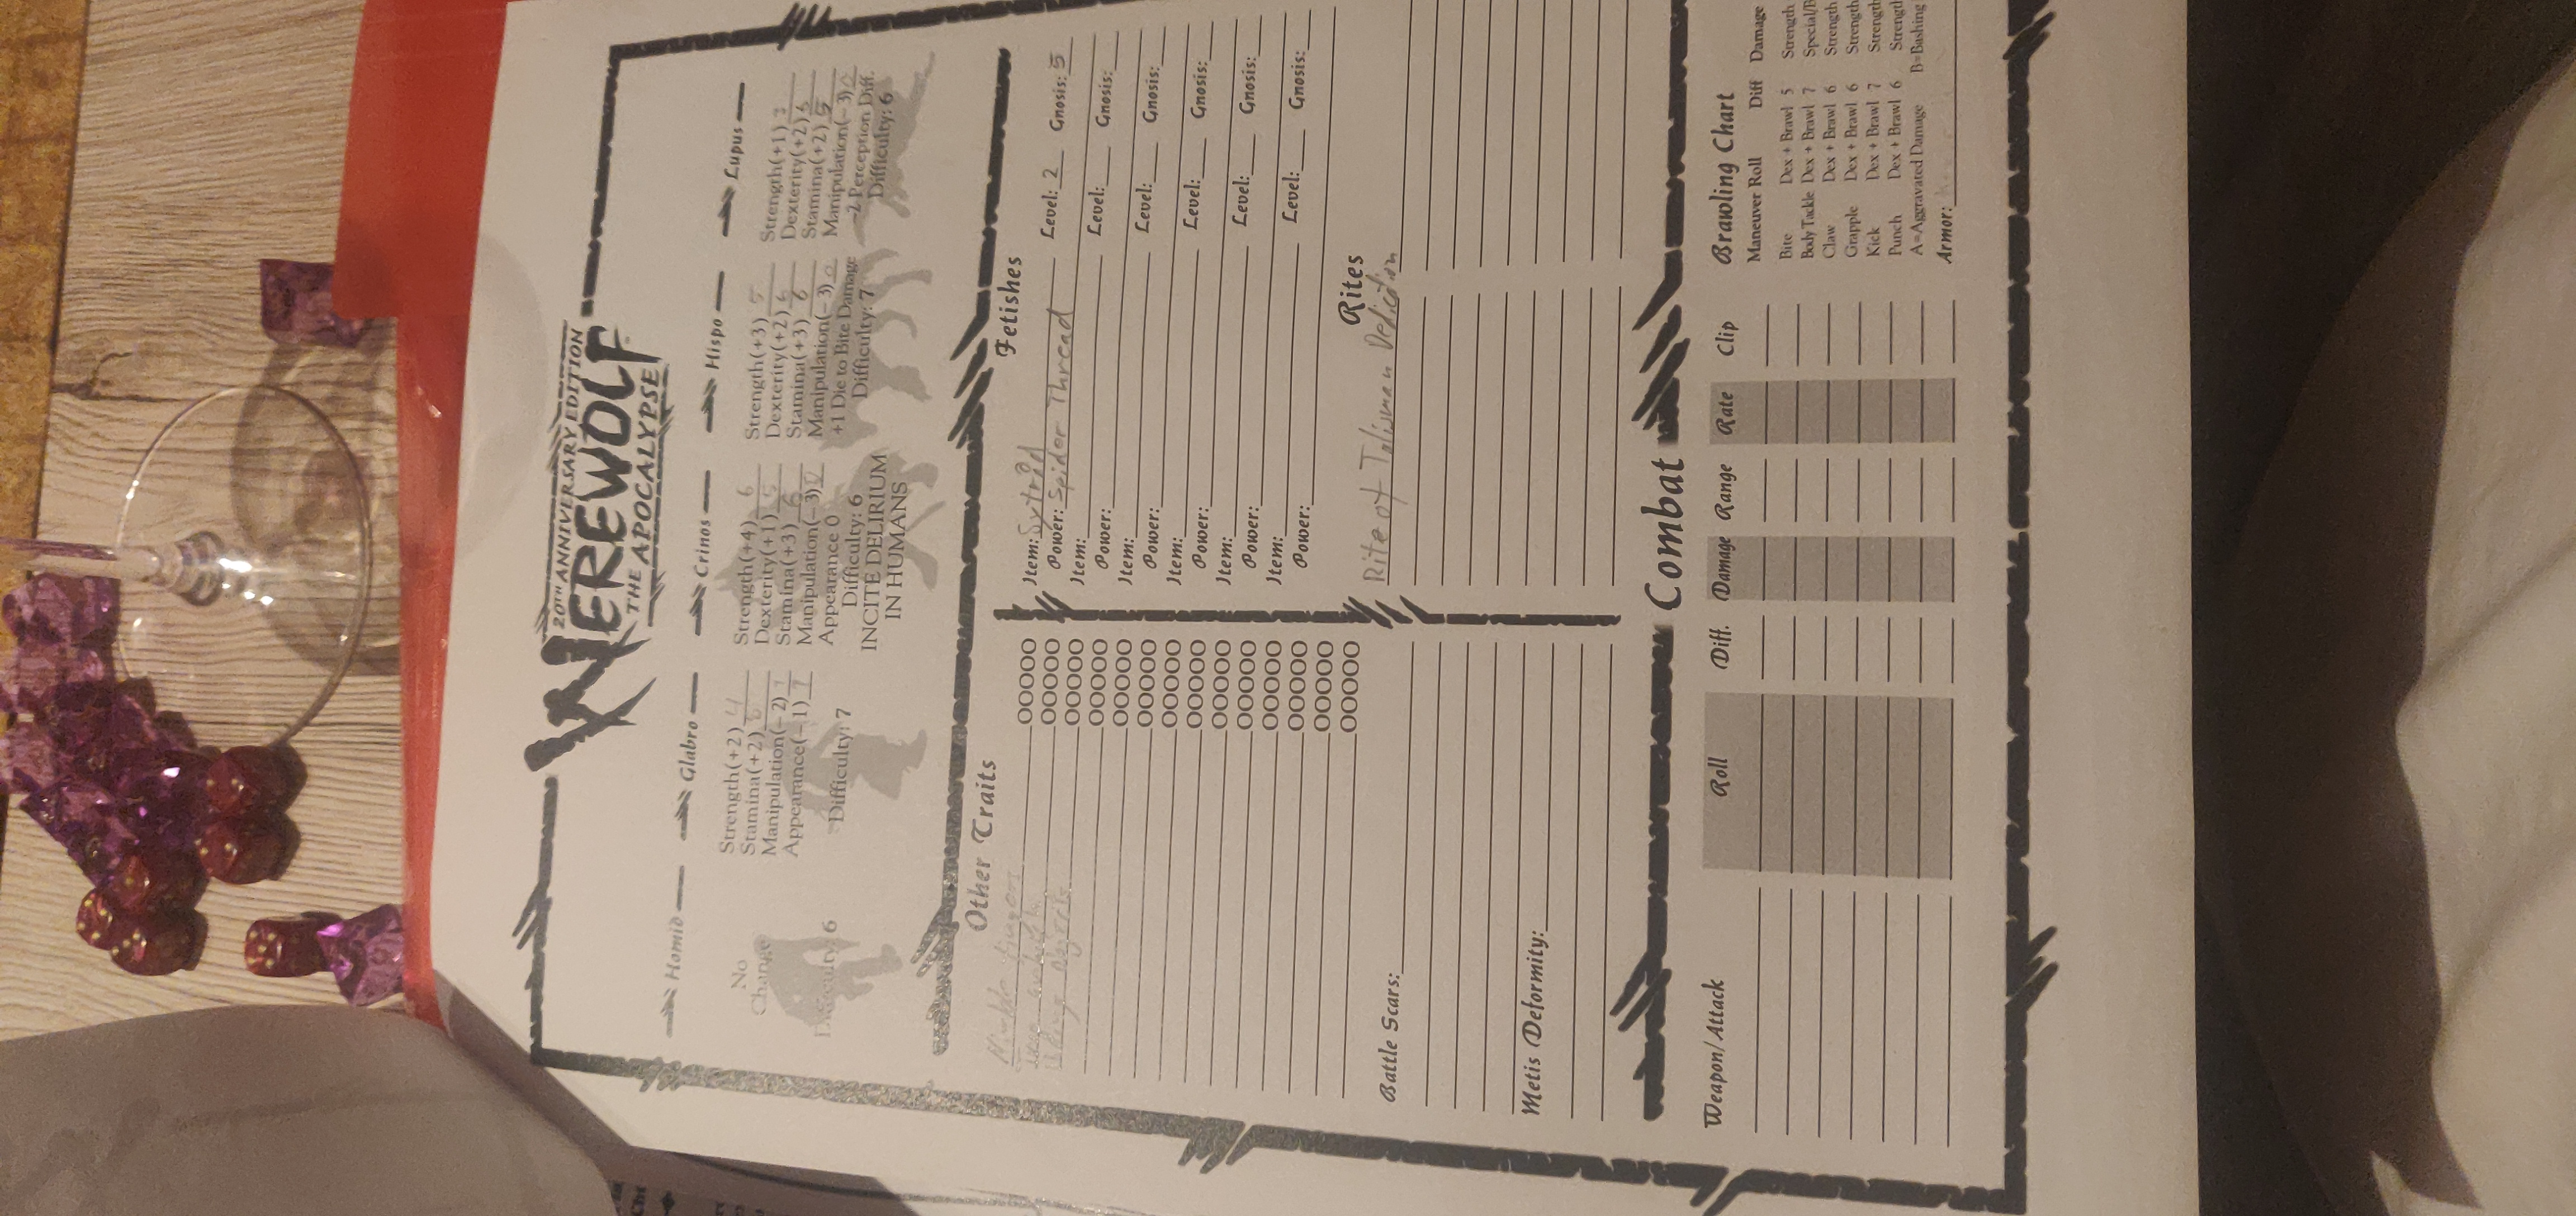 20TH ANNIVERSARY EDITION
WEREWOLF
THE APOCALYPSE
Homid
Glabro
Crinos
Hispo
Lupus
No
Change
Difficulty: 6
Strength(+2) 4
Stamina(+2)
Manipulation(-2) 1
Appearance(-1) 1
Difficulty: 7
Strength(+4) 6
Dexterity(+1) 5
Stamina(+3) 6
Manipulation(-3) 0
Appearance 0
Difficulty: 6
INCITE DELIRIUM
IN HUMANS
Strength(+3) 5
Dexterity(+2) 6
Stamina(+3) 6
Manipulation(-3) 0
+1 Die to Bite Damage
Difficulty: 7
Strength(+1) 3
Dexterity(+2) 6
Stamina(+2) 5
Manipulation(-3) 0
-2 Perception Diff.
Difficulty: 6
Other Traits
OOOOO
OOOOO
OOOOO
OOOOO
OOOOO
OOOOO
OOOOO
OOOOO
OOOOO
OOOOO
OOOOO
OOOOO
OOOOO
OOOOO
Battle Scars:
Metis Deformity:
Fetishes
Item: Level: 2 Gnosis: 5
Power: Spider Thread
Item: Level: Gnosis:
Power:
Item: Level: Gnosis:
Power:
Item: Level: Gnosis:
Power:
Item: Level: Gnosis:
Power:
Item: Level: Gnosis:
Power:
Rites
Rite of Talisman Dedication
Combat
Weapon/Attack Roll Diff. Damage Range Rate Clip
Brawling Chart
Maneuver Roll Diff Damage
Bite Dex + Brawl 5 Strength
Body Tackle Dex + Brawl 7 Special/B
Claw Dex + Brawl 6 Strength
Grapple Dex + Brawl 6 Strength
Kick Dex + Brawl 7 Strength
Punch Dex + Brawl 6 Strength
A=Aggravated Damage B=Bashing
Armor: